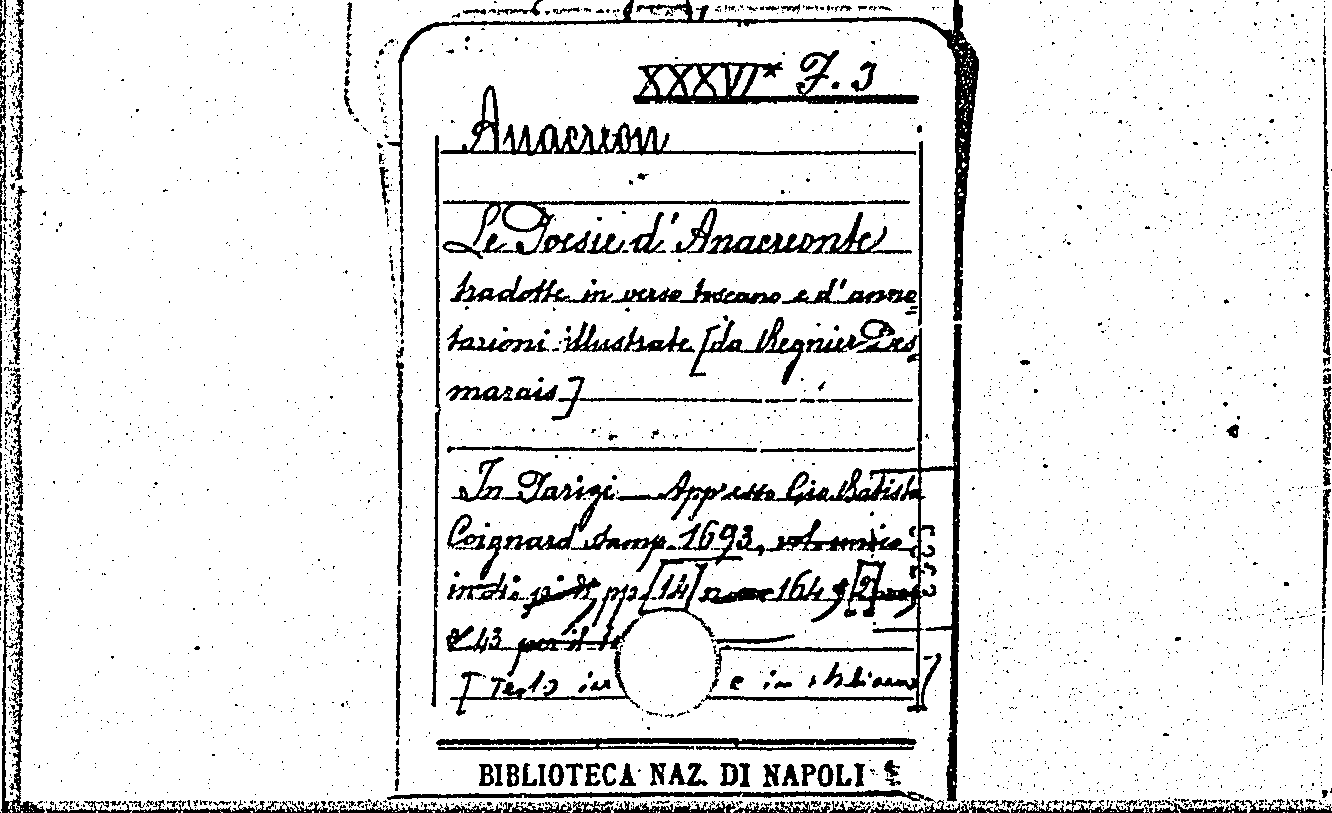 XXXVI* F. 3
Anacreon
Le Poesie d'Anacreonte
tradotte in verso toscano e d'anno
tazioni illustrate [da Regnier Des
marais]
In Parigi — Appresso Gio Batista
Coignard stamp. 1693, vol. unico
in di pp. [14] 164 [2]
e 43 per il
[Testo in e in italiano]
BIBLIOTECA NAZ. DI NAPOLI